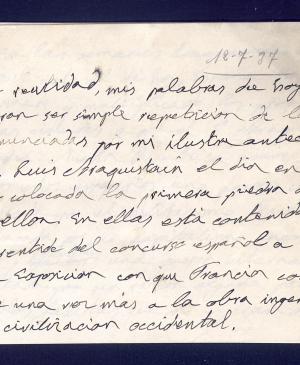 12-7-37
realidad, mis palabras de hoy
ran ser simple repetición de l
nunciadas por mi ilustre antec
Luis Araquistain el día en
colocada la primera piedra d
ellon. En ellas está contenid
sentido del concurso español a
Exposicion con que Francia co
una vez más a la obra ingen
civilizacion occidental.